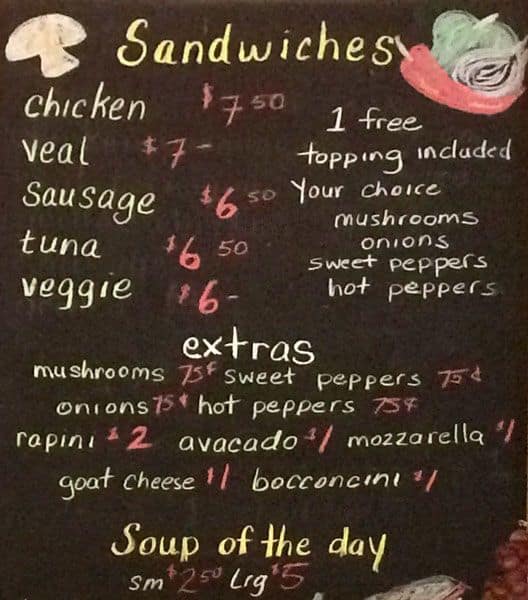 Sandwiches
chicken $7 50
veal $7-
Sausage $6 50
tuna $6 50
veggie $6-
1 free
topping included
Your choice
mushrooms
onions
sweet peppers
hot peppers
extras
mushrooms 75¢ sweet peppers 75¢
onions 75¢ hot peppers 75¢
rapini $2 avacado $1 mozzarella $1
goat cheese $1 bocconcini $1
Soup of the day
sm $2 50 Lrg $5